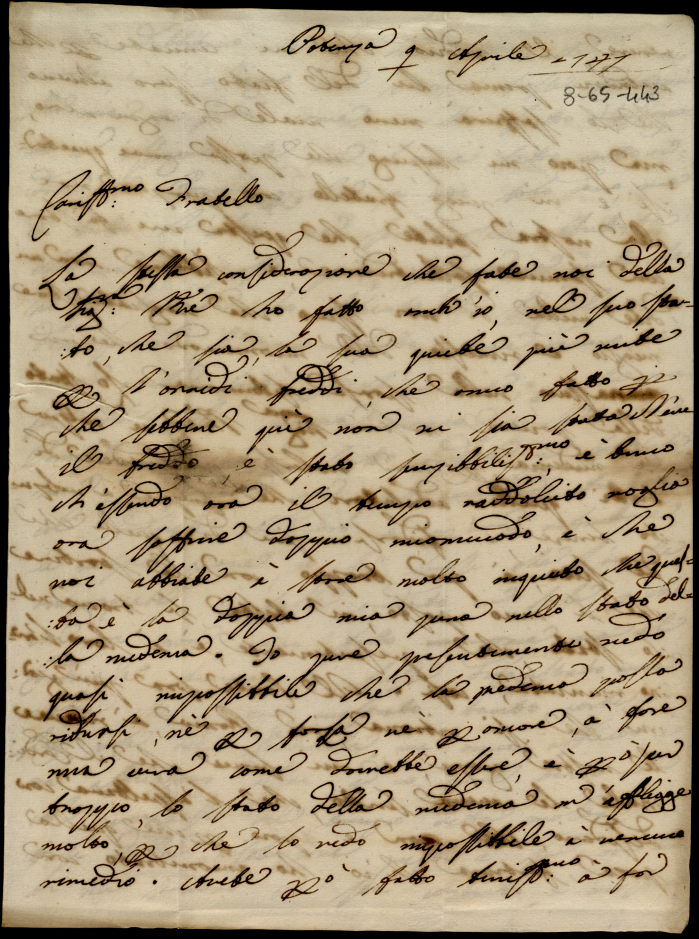 Potenza 9 Aprile 1777
8-65-443
Cariss:mo Fratello
La stessa considerazione che fate voi della
Sig:ra Zia ho fatto anch'io, nel suo sta-
:to, che sia, la sua quiete più
P l'ornidi freddi, che anno fatto P
che sebbene quì non vi sia stata Neve
il freddo è stato sensibbiliss:mo, è temo
ch'essendo ora il tempo raddolcito voglia
ora soffrire doppio incomodo, è che
voi abbiate à stare molto inquieto che ques-
:ta è la doppia mia pena nello stato del-
:la medema. Io pure presentemente vedo
quasi impossibbile che la medema possa
ridursi, nè P forza nè P amore, à fare
una cura come dovrebbe essere è Pò pur
troppo, lo stato della medema m'affligge
molto, P che lo vedo impossibbile à veruno
rimedio. Avete Pò fatto beniss:mo à far